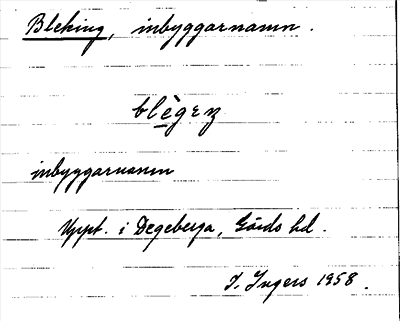 Bleking, inbyggarnamn.
blègeɳ
inbyggarnamn
Uppt. i Degeberga, Gärds hd.
I. Ingers 1958.